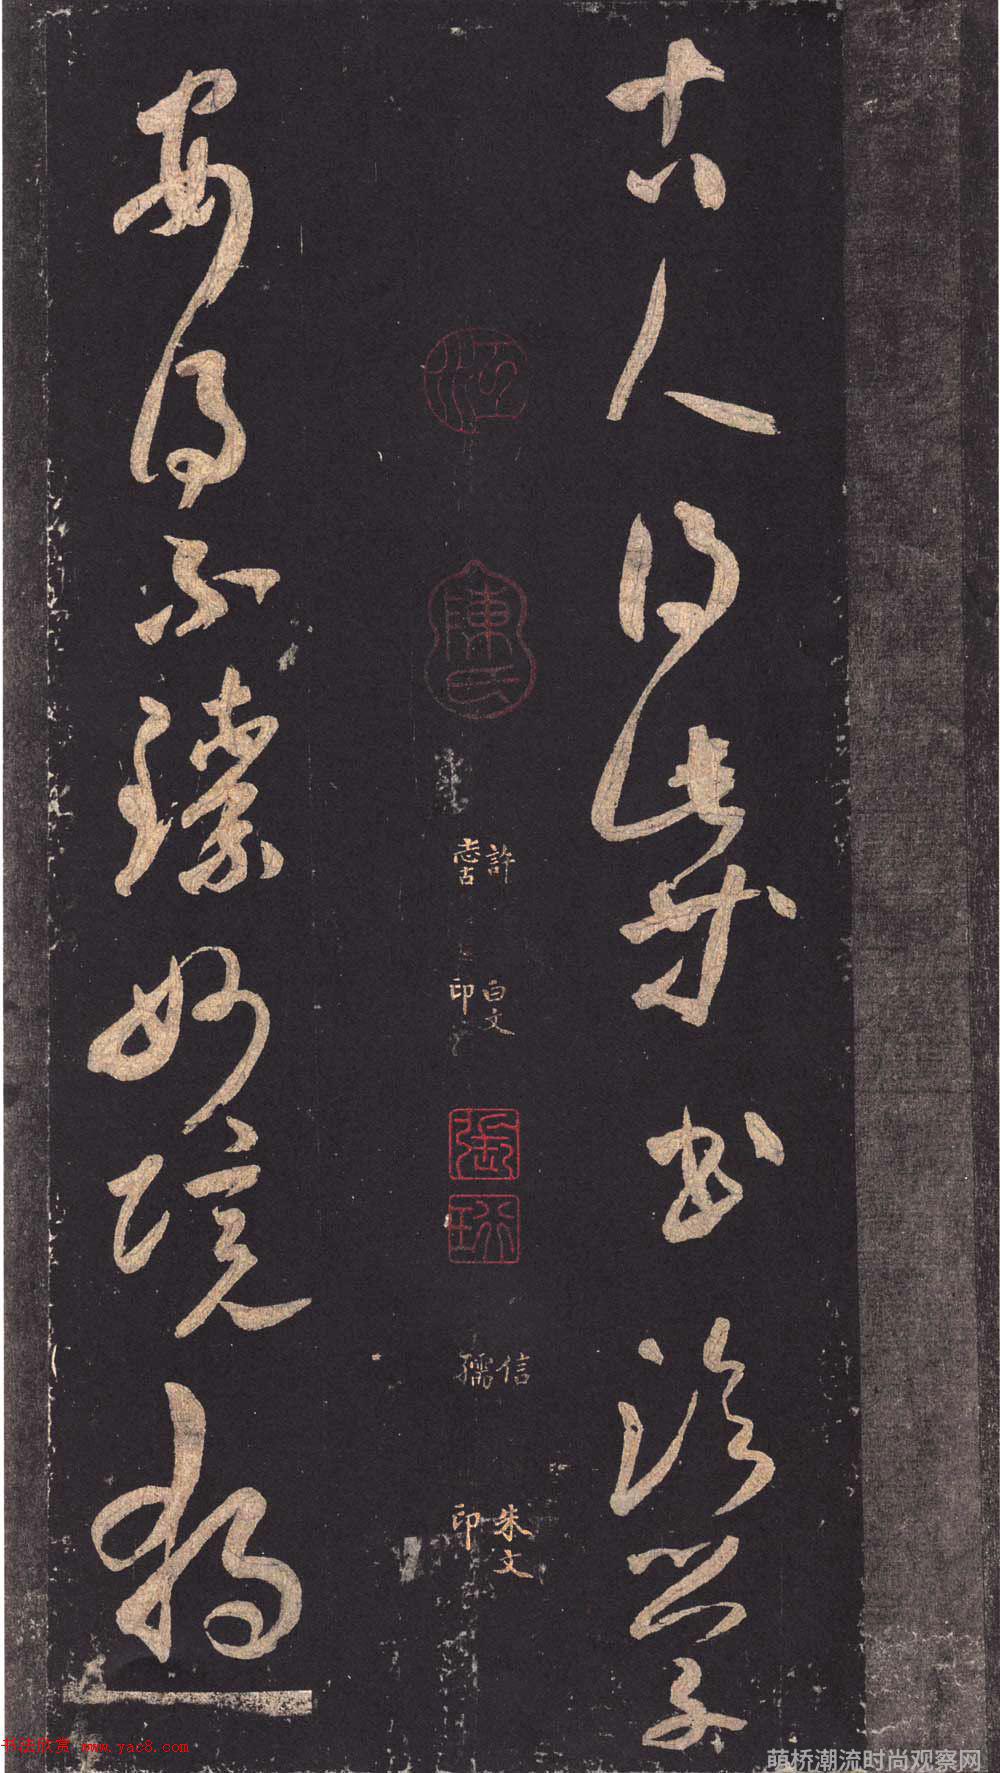 古人得此書臨學
許
白文
印
陳氏
信孺
朱文
印
安得不臻妙境獨
书法欣赏 www.yac8.com
萌桥潮流时尚观察网